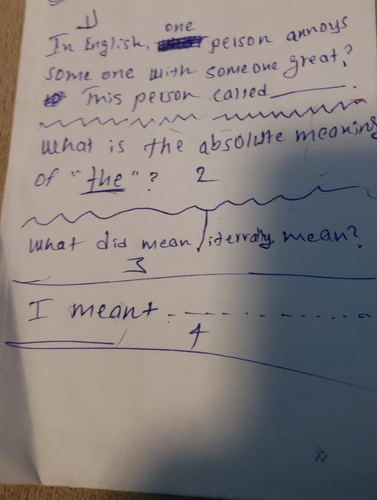 1)
In English, one person annoys
some one with someone great?
This person called ______.
What is the absolute meaning
of "the"? 2
What did mean literally mean?
3
I meant ..............
4